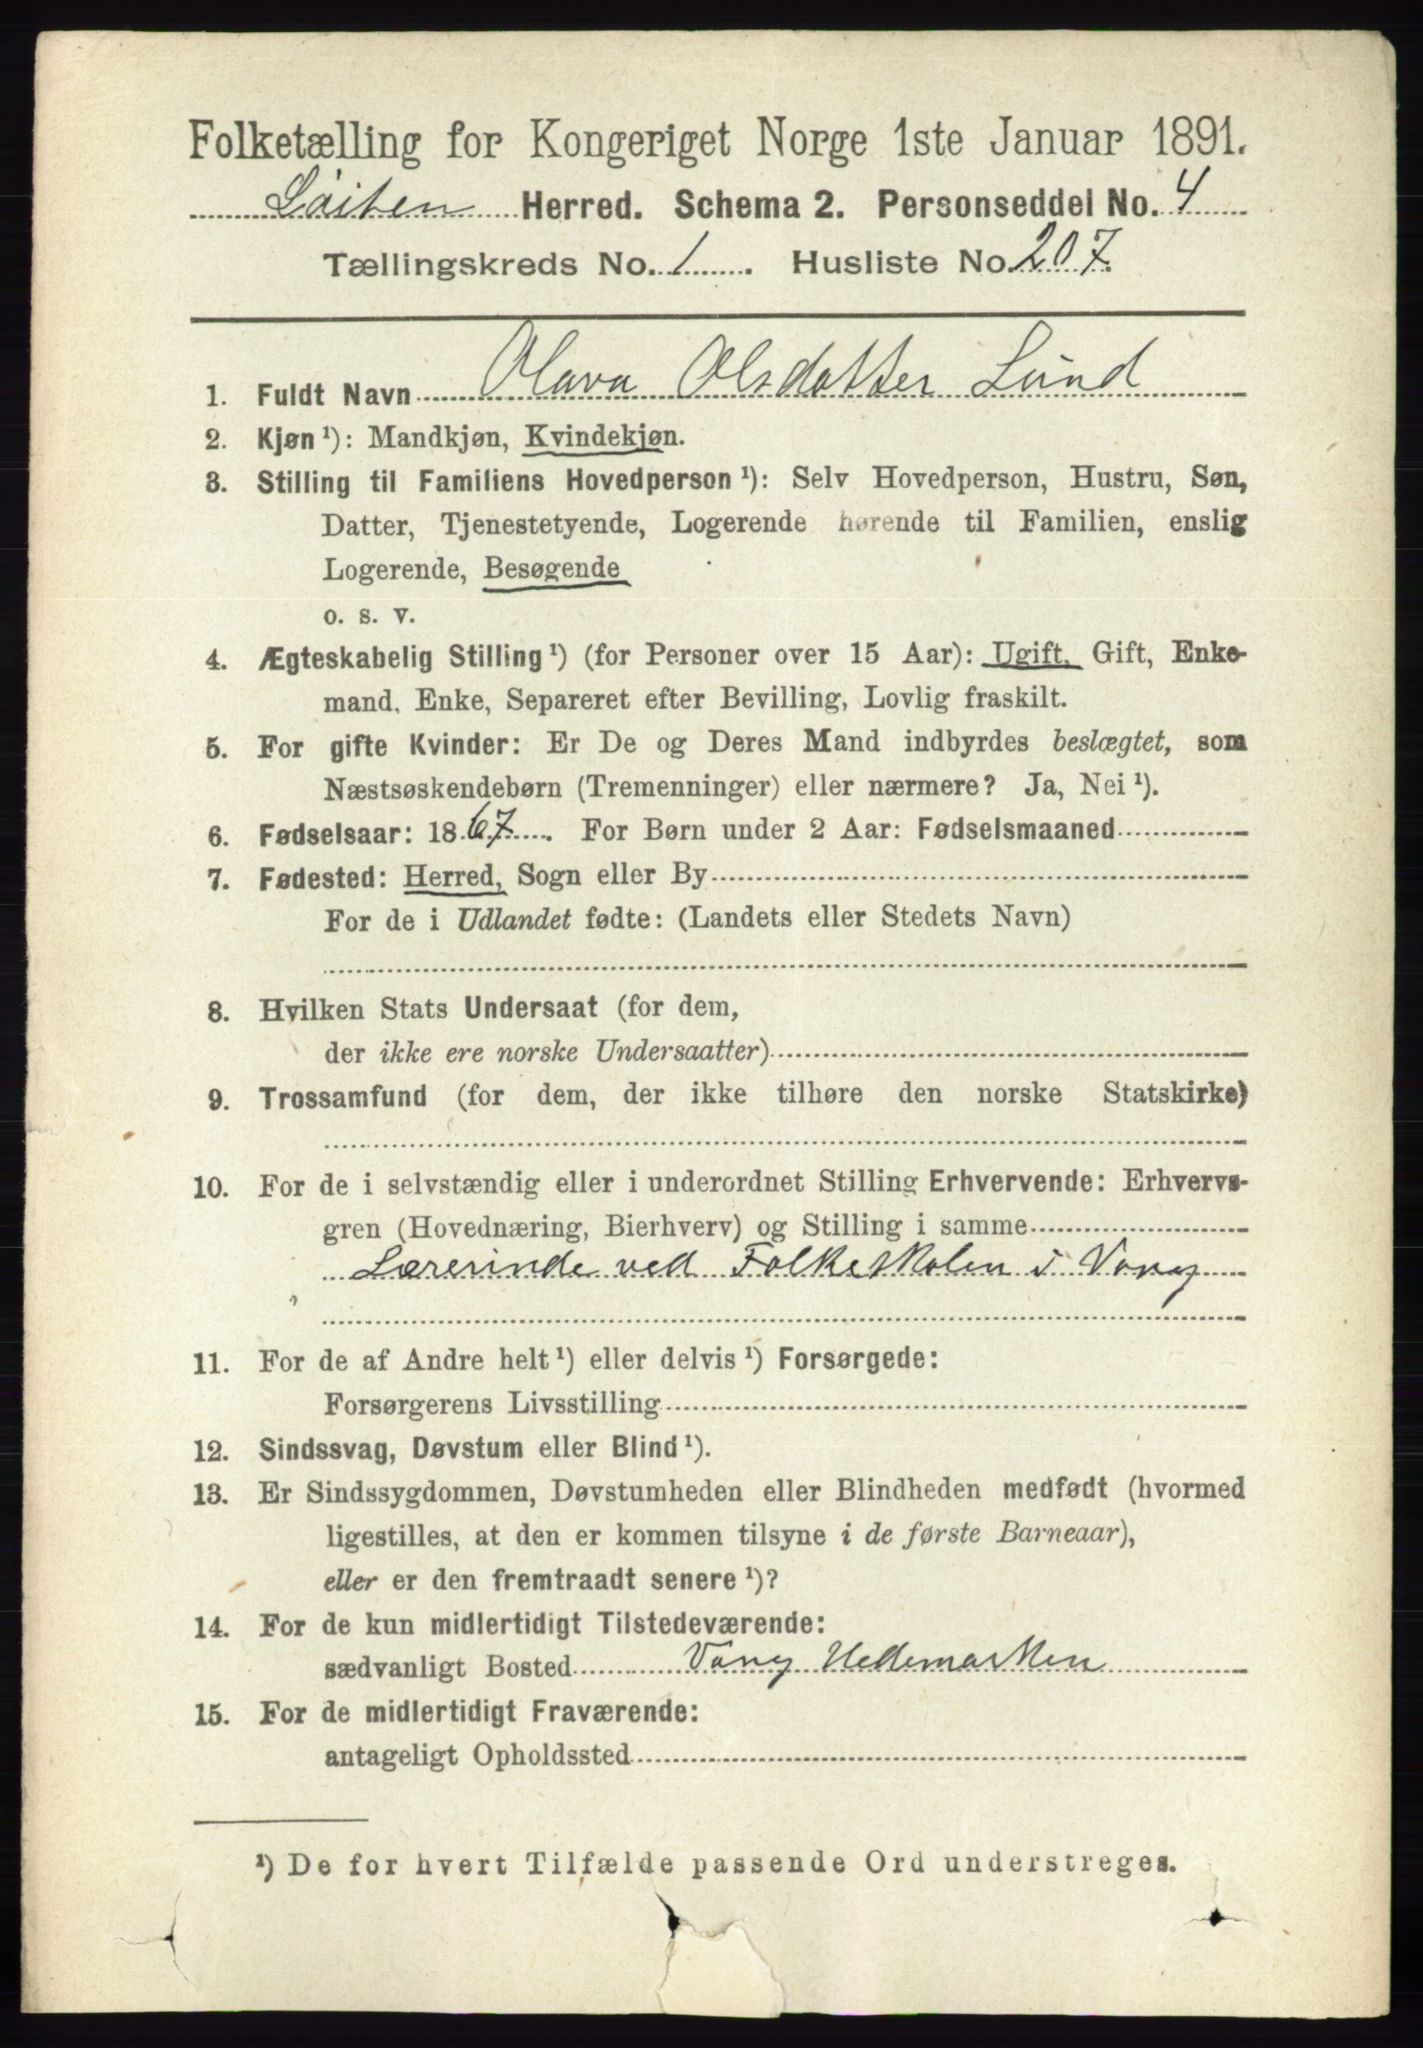 Folketælling for Kongeriget Norge 1ste Januar 1891.
Löiten Herred. Schema 2. Personseddel No. 4
Tællingskreds No. 1. Husliste No. 207.
1. Fuldt Navn Olava Olsdatter Lund
2. Kjøn ¹): Mandkjøn, Kvindekjøn.
3. Stilling til Familiens Hovedperson ¹): Selv Hovedperson, Hustru, Søn,
Datter, Tjenestetyende, Logerende hørende til Familien, enslig
Logerende, Besøgende
o. s. v.
4. Ægteskabelig Stilling ¹) (for Personer over 15 Aar): Ugift, Gift, Enke-
mand, Enke, Separeret efter Bevilling, Lovlig fraskilt.
5. For gifte Kvinder: Er De og Deres Mand indbyrdes beslægtet, som
Næstsøskendebørn (Tremenninger) eller nærmere? Ja, Nei ¹).
6. Fødselsaar: 1867. For Børn under 2 Aar: Fødselsmaaned
7. Fødested: Herred, Sogn eller By
For de i Udlandet fødte: (Landets eller Stedets Navn)
8. Hvilken Stats Undersaat (for dem,
der ikke ere norske Undersaatter)
9. Trossamfund (for dem, der ikke tilhøre den norske Statskirke)
10. For de i selvstændig eller i underordnet Stilling Erhvervende: Erhvervs-
gren (Hovednæring, Bierhverv) og Stilling i samme
Lærerinde ved Folkeskolen i Vang
11. For de af Andre helt ¹) eller delvis ¹) Forsørgede:
Forsørgerens Livsstilling
12. Sindssvag, Døvstum eller Blind ¹).
13. Er Sindssygdommen, Døvstumheden eller Blindheden medfødt (hvormed
ligestilles, at den er kommen tilsyne i de første Barneaar),
eller er den fremtraadt senere ¹)?
14. For de kun midlertidigt Tilstedeværende:
sædvanligt Bosted Vang Hedemarken
15. For de midlertidigt Fraværende:
antageligt Opholdssted
¹) De for hvert Tilfælde passende Ord understreges.